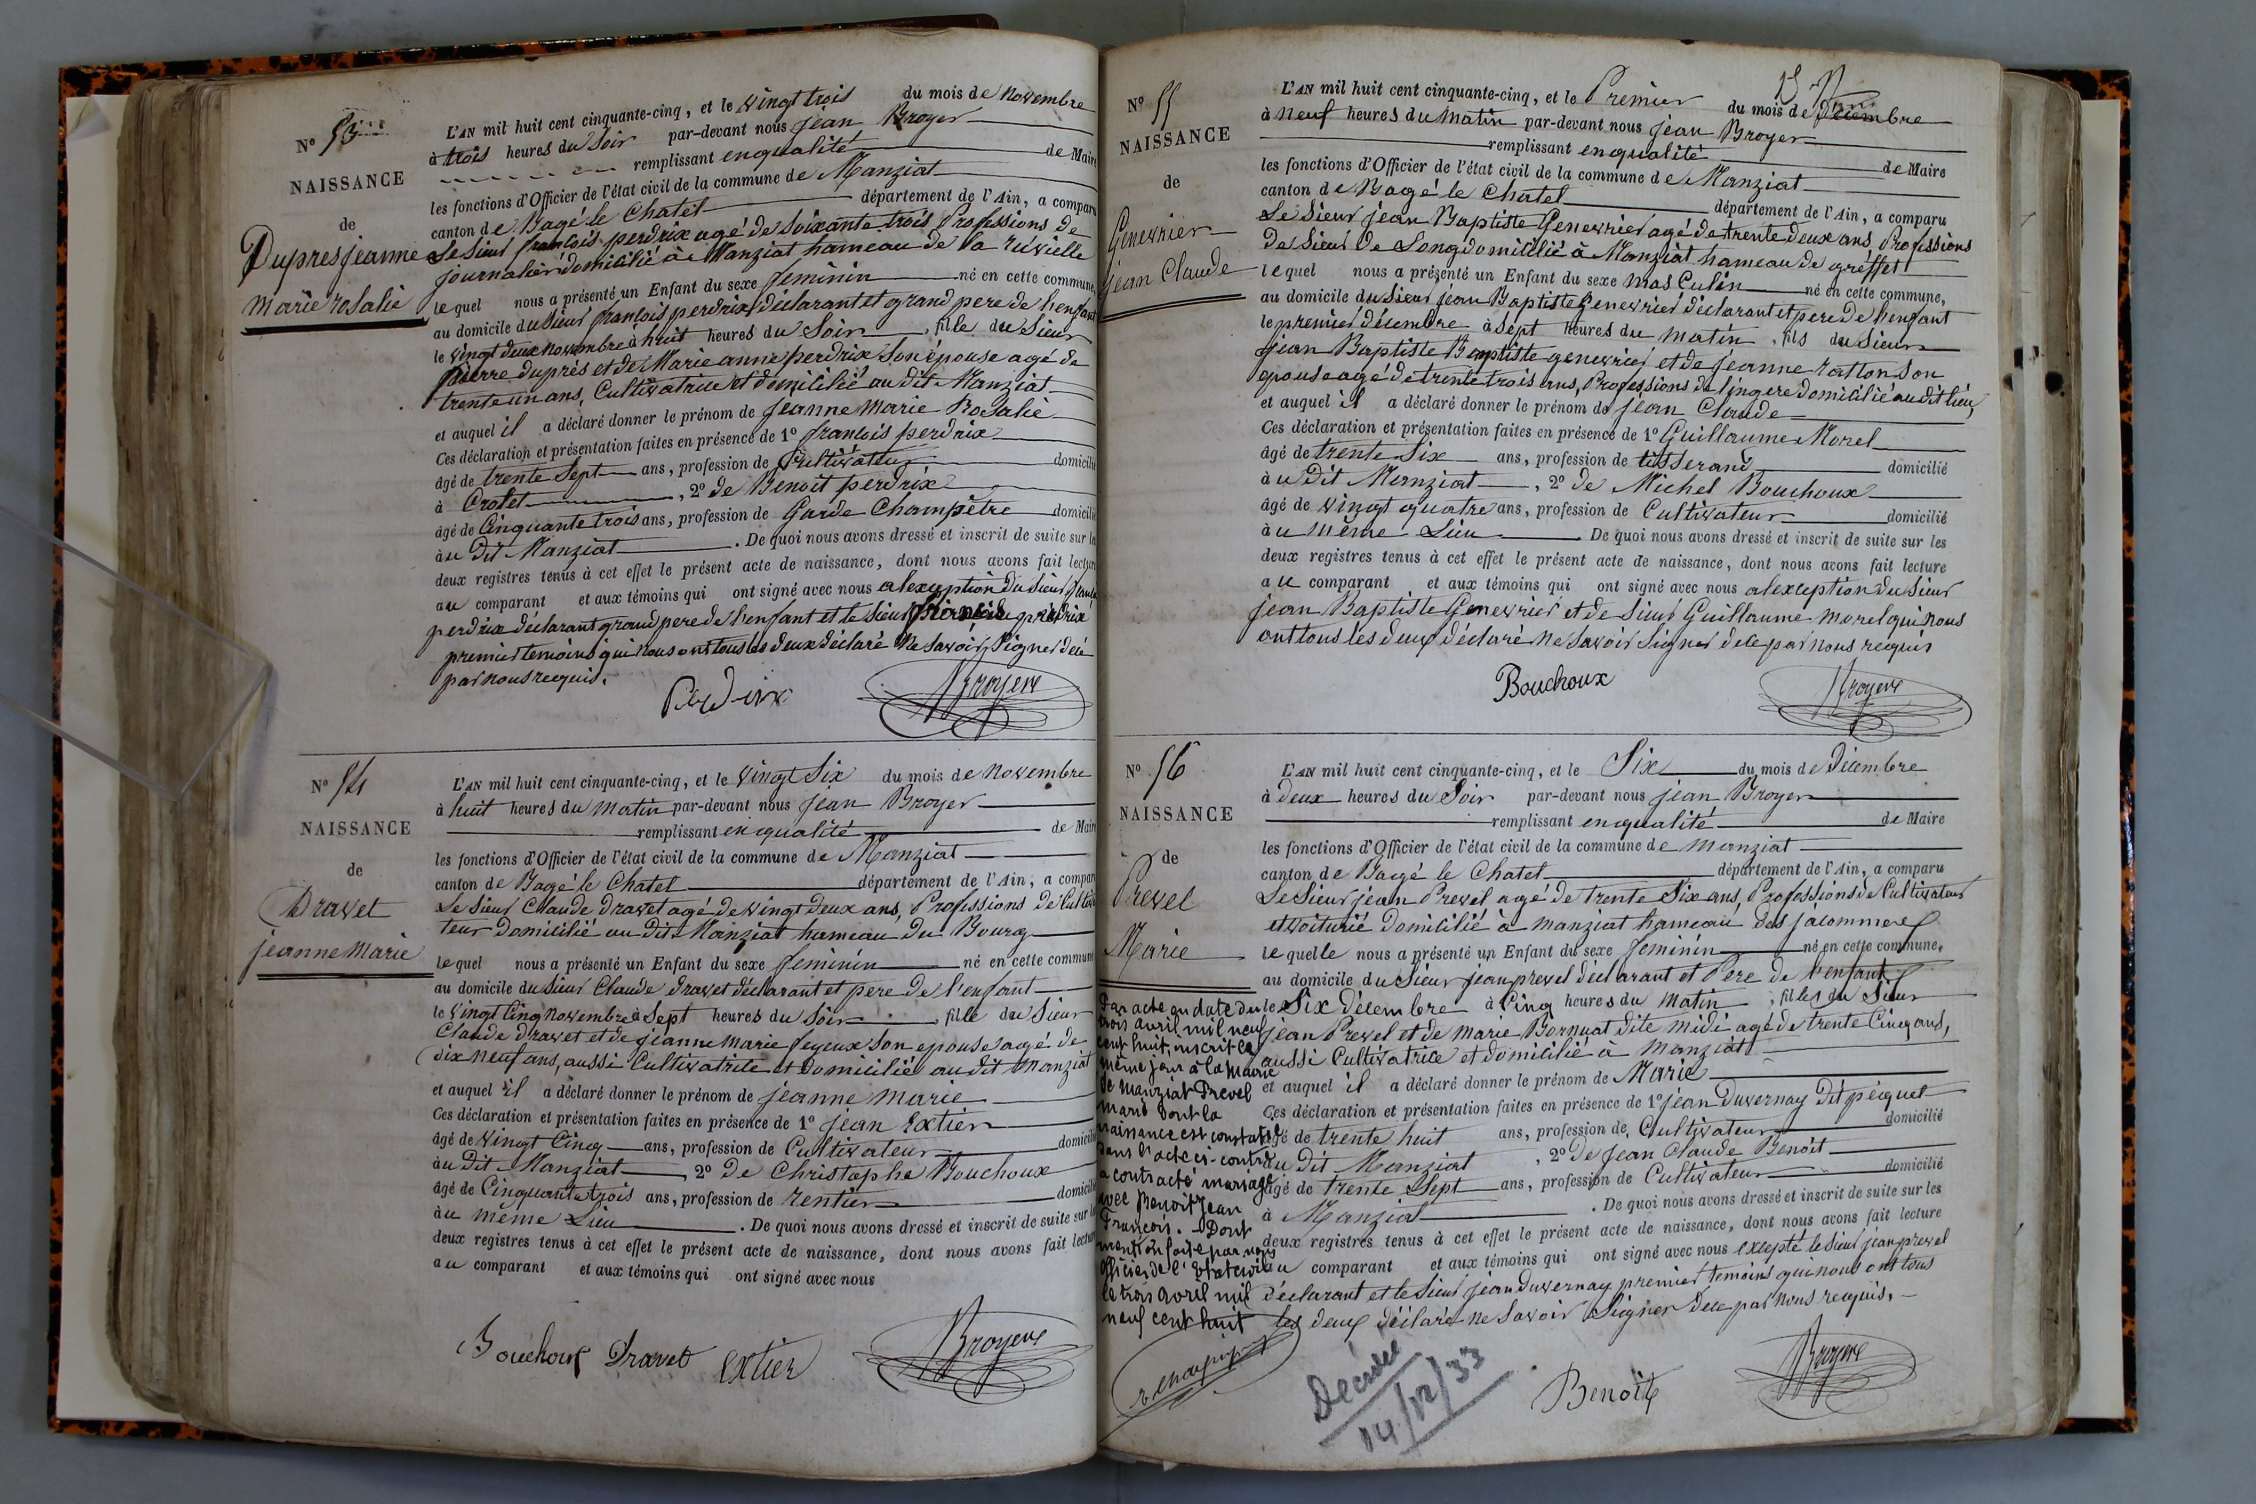 N° 53
NAISSANCE
de
Dupres jeanne
marie rosalie
L'AN mil huit cent cinquante-cinq, et le vingt trois du mois de Novembre
à trois heures du Soir par-devant nous jean Broyer
remplissant en qualité de Maire
les fonctions d'Officier de l'état civil de la commune de Manziat
canton de Bagé le Chatel département de l'Ain, a comparu
Le Sieur françois perdrix agé de Soixante trois Professions de
journalier domicilié à Manziat hameau de la
lequel nous a présenté un Enfant du sexe feminin né en cette commune,
au domicile du Sieur françois perdrix déclarant et grand pere de l'enfant
le vingt deux Novembre à huit heures du Soir, fille du Sieur
pierre duprés et de Marie anne perdrix Son épouse agé de
trente un ans, Cultivatrice et domicilié au dit Manziat
et auquel il a déclaré donner le prénom de jeanne Marie Rosalie
Ces déclaration et présentation faites en présence de 1° françois perdrix
âgé de trente Sept ans, profession de Cultivateur domicilié
à Crotet, 2° de Benoit perdrix
âgé de Cinquante trois ans, profession de Garde Champêtre domicilié
à u Dit Manziat. De quoi nous avons dressé et inscrit de suite sur les
deux registres tenus à cet effet le présent acte de naissance, dont nous avons fait lecture
au comparant et aux témoins qui ont signé avec nous a lexception du Sieur
perdrix déclarant grand pere de l'enfant et le Sieur perdrix
premier temoins qui nous ont tous les deux déclaré Ne Savoir Signer de ce
par nous requis.
Perdrix Broyer
N° 54
NAISSANCE
de
Dravet
jeanne Marie
L'AN mil huit cent cinquante-cinq, et le vingt Six du mois de Novembre
à huit heures du matin par-devant nous jean Broyer
remplissant en qualité de Maire
les fonctions d'Officier de l'état civil de la commune de Manziat
canton de Bagé le Chatel département de l'Ain, a comparu
Le Sieur Claude dravet agé de vingt deux ans, Professions de Cultiva
teur domicilié au dit Manziat hameau du Bourg
lequel nous a présenté un Enfant du sexe feminin né en cette commune
au domicile du Sieur Claude dravet déclarant et pere de l'enfant
le vingt Cinq Novembre à Sept heures du Soir, fille du Sieur
Claude dravet et de jeanne marie feyeux Son epouse agé de
dix neuf ans, aussi Cultivatrice et domicilié au dit Manziat
et auquel il a déclaré donner le prénom de jeanne marie
Ces déclaration et présentation faites en présence de 1° jean Extier
âgé de vingt Cinq ans, profession de Cultivateur domicilié
à u Dit Manziat 2° de Christophe Bouchoux
âgé de Cinquante trois ans, profession de rentier domicilié
à u même Lieu. De quoi nous avons dressé et inscrit de suite sur les
deux registres tenus à cet effet le présent acte de naissance, dont nous avons fait lecture
au comparant et aux témoins qui ont signé avec nous
Bouchoux Dravet extier Broyer
N° 55
NAISSANCE
de
Genevrier
jean Claude
L'AN mil huit cent cinquante-cinq, et le Premier du mois de Décembre
à neuf heures du matin par-devant nous jean Broyer
remplissant en qualité de Maire
les fonctions d'Officier de l'état civil de la commune de Manziat
canton de Bagé le Chatel département de l'Ain, a comparu
Le Sieur jean Baptiste Genevrier agé de trente deux ans, Professions
de Sieur de Long domicilié à Manziat hameau de greffet
lequel nous a présenté un Enfant du sexe mas Culin né en cette commune,
au domicile du Sieur jean Baptiste Genevrier déclarant et pere de l'enfant
le premier décembre à Sept heures du matin, fils du Sieur
jean Baptiste Baptiste genevrier et de jeanne ratton Son
epouse agé de trente trois ans, Professions de lingere domicilié au dit lieu,
et auquel il a déclaré donner le prénom de jean Claude
Ces déclaration et présentation faites en présence de 1° Guillaume Morel
âgé de trente Six ans, profession de tisserand domicilié
à u Dit Manziat, 2° de Michel Bouchoux
âgé de vingt quatre ans, profession de Cultivateur domicilié
à u même Lieu. De quoi nous avons dressé et inscrit de suite sur les
deux registres tenus à cet effet le présent acte de naissance, dont nous avons fait lecture
au comparant et aux témoins qui ont signé avec nous a lexception du Sieur
jean Baptiste Genevrier et de Sieur Guillaume morel qui nous
ont tous les deux déclaré Ne Savoir Signer de ce par nous requis
Bouchoux Broyer
N° 56
NAISSANCE
de
Prevel
Marie
L'AN mil huit cent cinquante-cinq, et le Six du mois de Décembre
à deux heures du Soir par-devant nous jean Broyer
remplissant en qualité de Maire
les fonctions d'Officier de l'état civil de la commune de Manziat
canton de Bagé le Chatel département de l'Ain, a comparu
Le Sieur jean Prevel agé de trente Six ans, Professions de Cultivateur
et voiturié domicilié à Manziat hameau des jacommes
lequelle nous a présenté un Enfant du sexe feminin né en cette commune,
au domicile du Sieur jean prevel déclarant et Pere de l'enfant
le Six décembre à Cinq heures du matin, filles du Sieur
jean Prevel et de marie Bornuat dite midi agé de trente Cinq ans,
aussi Cultivatrice et domicilié à Manziat
et auquel il a déclaré donner le prénom de Marie
Ces déclaration et présentation faites en présence de 1° jean Duvernay Dit pecquet
âgé de trente huit ans, profession de Cultivateur domicilié
au dit Manziat, 2° de Jean Claude Benoit
âgé de trente Sept ans, profession de Cultivateur domicilié
à Manziat. De quoi nous avons dressé et inscrit de suite sur les
deux registres tenus à cet effet le présent acte de naissance, dont nous avons fait lecture
au comparant et aux témoins qui ont signé avec nous excepté le Sieur jean prevel
déclarant et le Sieur jean Duvernay premier temoins qui nous ont tous
les deux déclaré ne Savoir Signer de ce par nous requis.
Benoit Broyer
Par acte en date du
trois avril mil neuf
cent huit, inscrit le
même jour à la mairie
de Manziat Prevel
Marie dont la
naissance est constatée
dans l'acte ci-contre
a contracté mariage
avec Benoit Jean
François. - Dont
mention faite par nous
officier de l'Etat civil
le trois avril mil
neuf cent huit
Décédée
14/12/33